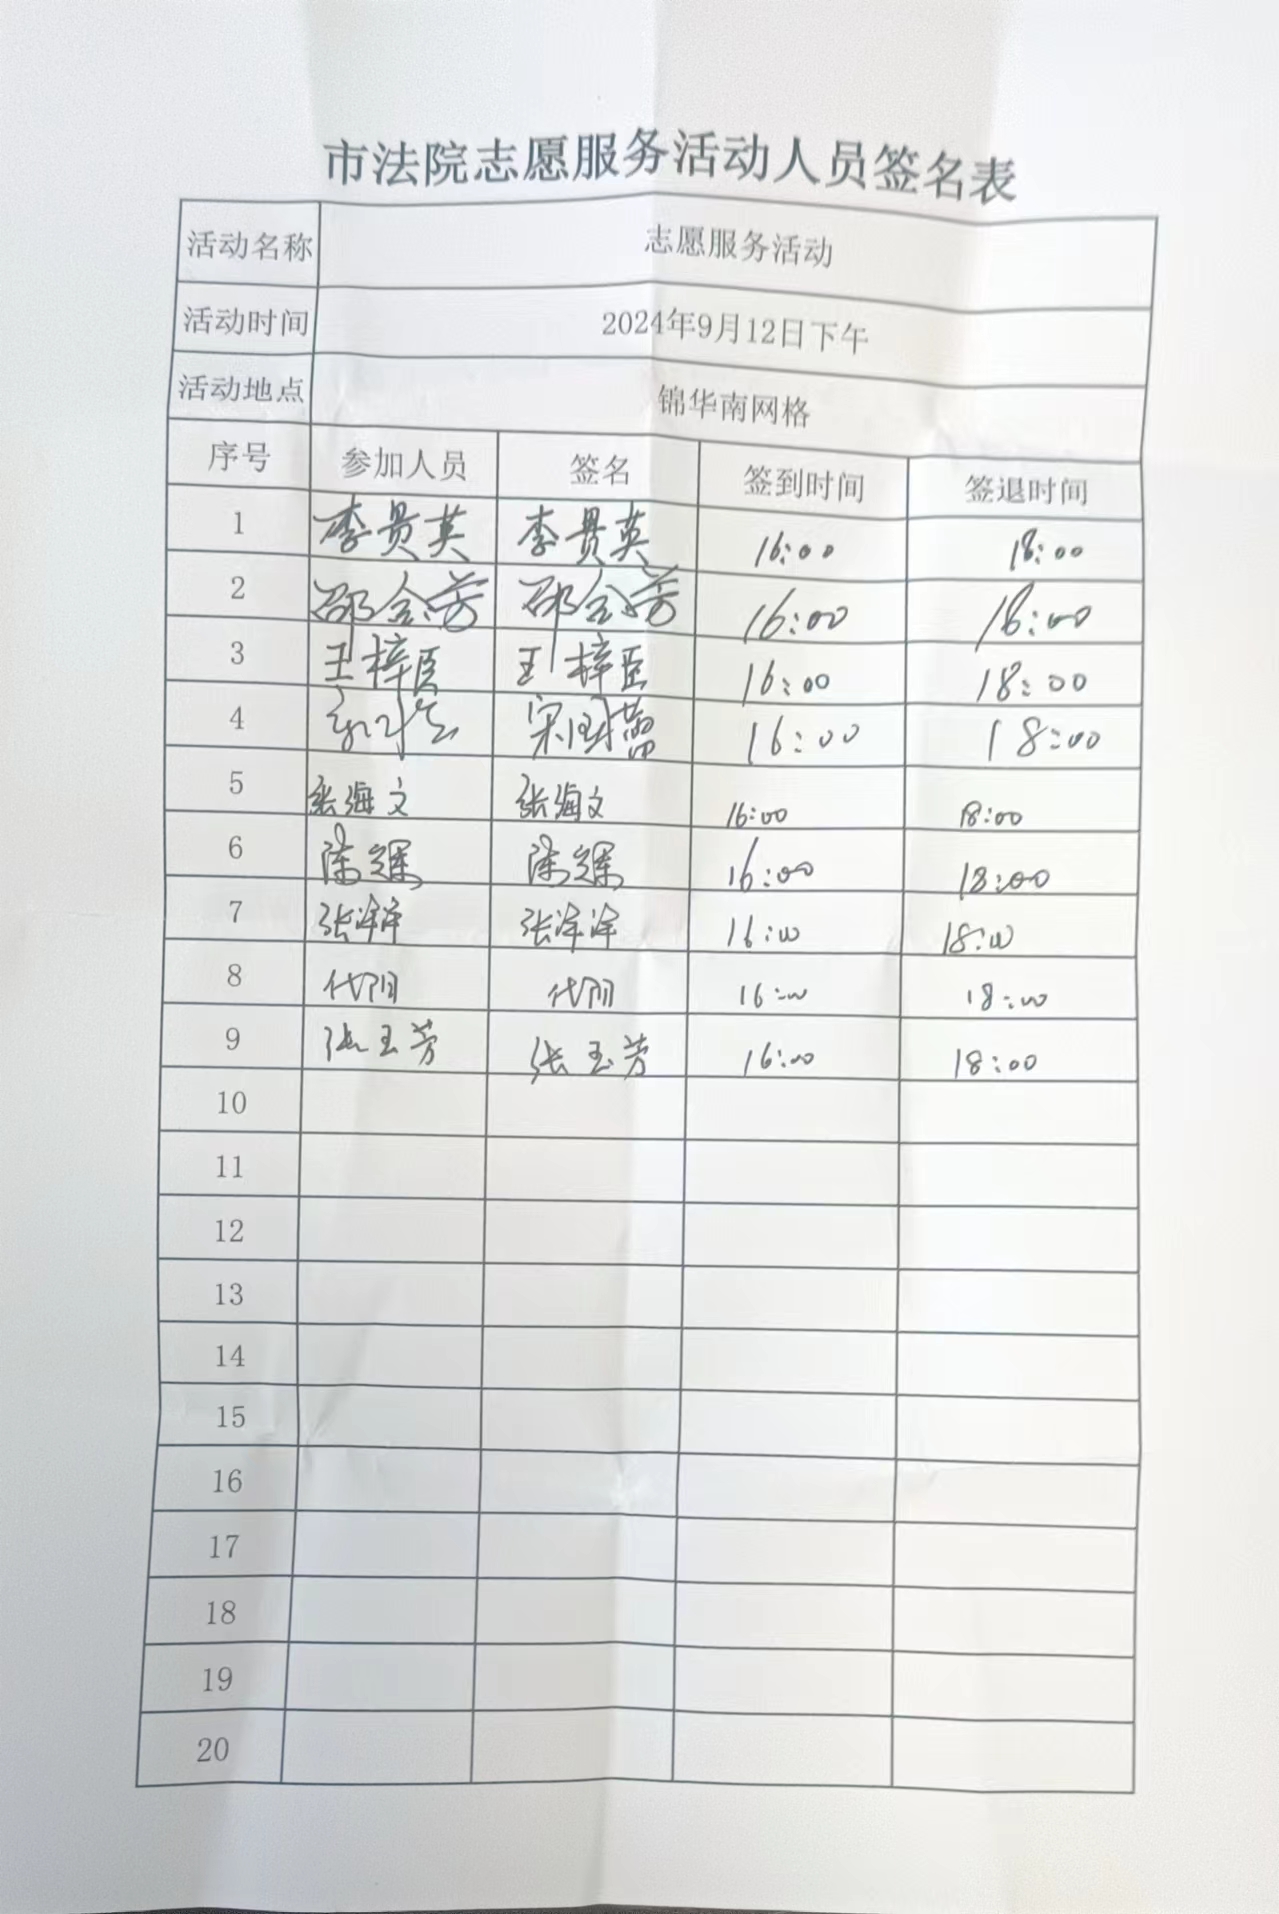 市法院志愿服务活动人员签名表
活动名称 志愿服务活动
活动时间 2024年9月12日下午
活动地点 锦华南网格
序号 参加人员 签名 签到时间 签退时间
1 李贵英 李贵英 16:00 18:00
2 邵金芳 邵金芳 16:00 18:00
3 王梓臣 王梓臣 16:00 18:00
4 16:00 18:00
5 张海文 张海文 16:00 18:00
6 16:00 18:00
7 张泽泽 张泽泽 16:00 18:00
8 代阳 代阳 16:00 18:00
9 张玉芳 张玉芳 16:00 18:00
10
11
12
13
14
15
16
17
18
19
20